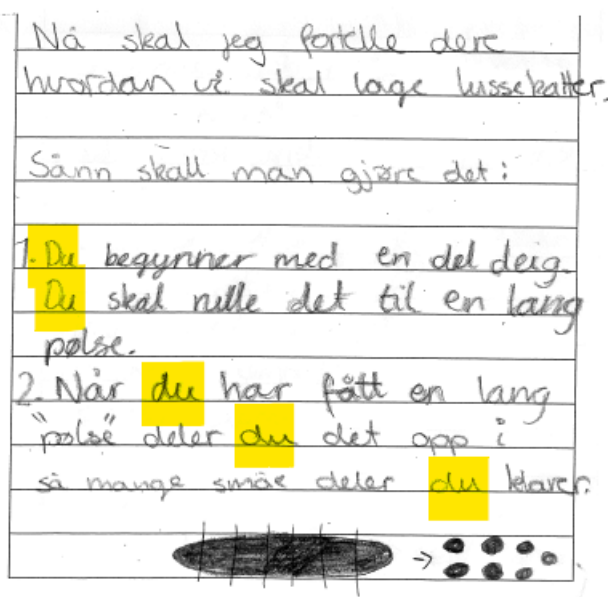 Nå skal jeg fortelle dere
hvordan vi skal lage lussekatter.
Sånn skall man gjøre det:
1. Du begynner med en del deig.
Du skal rulle det til en lang
pølse.
2. Når du har fått en lang
"pølse" deler du det opp i
så mange småe deler du klarer.